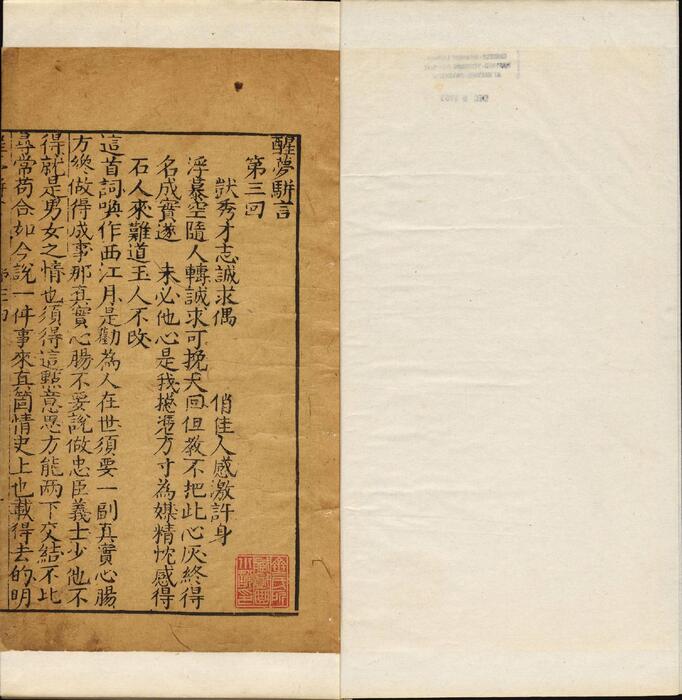 醒夢駢言
第三回
獃秀才志誠求偶 俏佳人感激許身
浮暴空隨人轉誠求可挽天回但教不把此心灰終得
名成實遂 未必他心是我捲憑方寸為媒精忱感得
石人來難道玉人不改
這首詞喚作西江月是勸為人在世須要一副真實心腸
方纔做得成事那真實心腸不要說做忠臣義士少他不
得就是男女之情也須得這點意思方能兩下交結不比
尋常苟合如今說一件事來真箇情史上也載得去的明